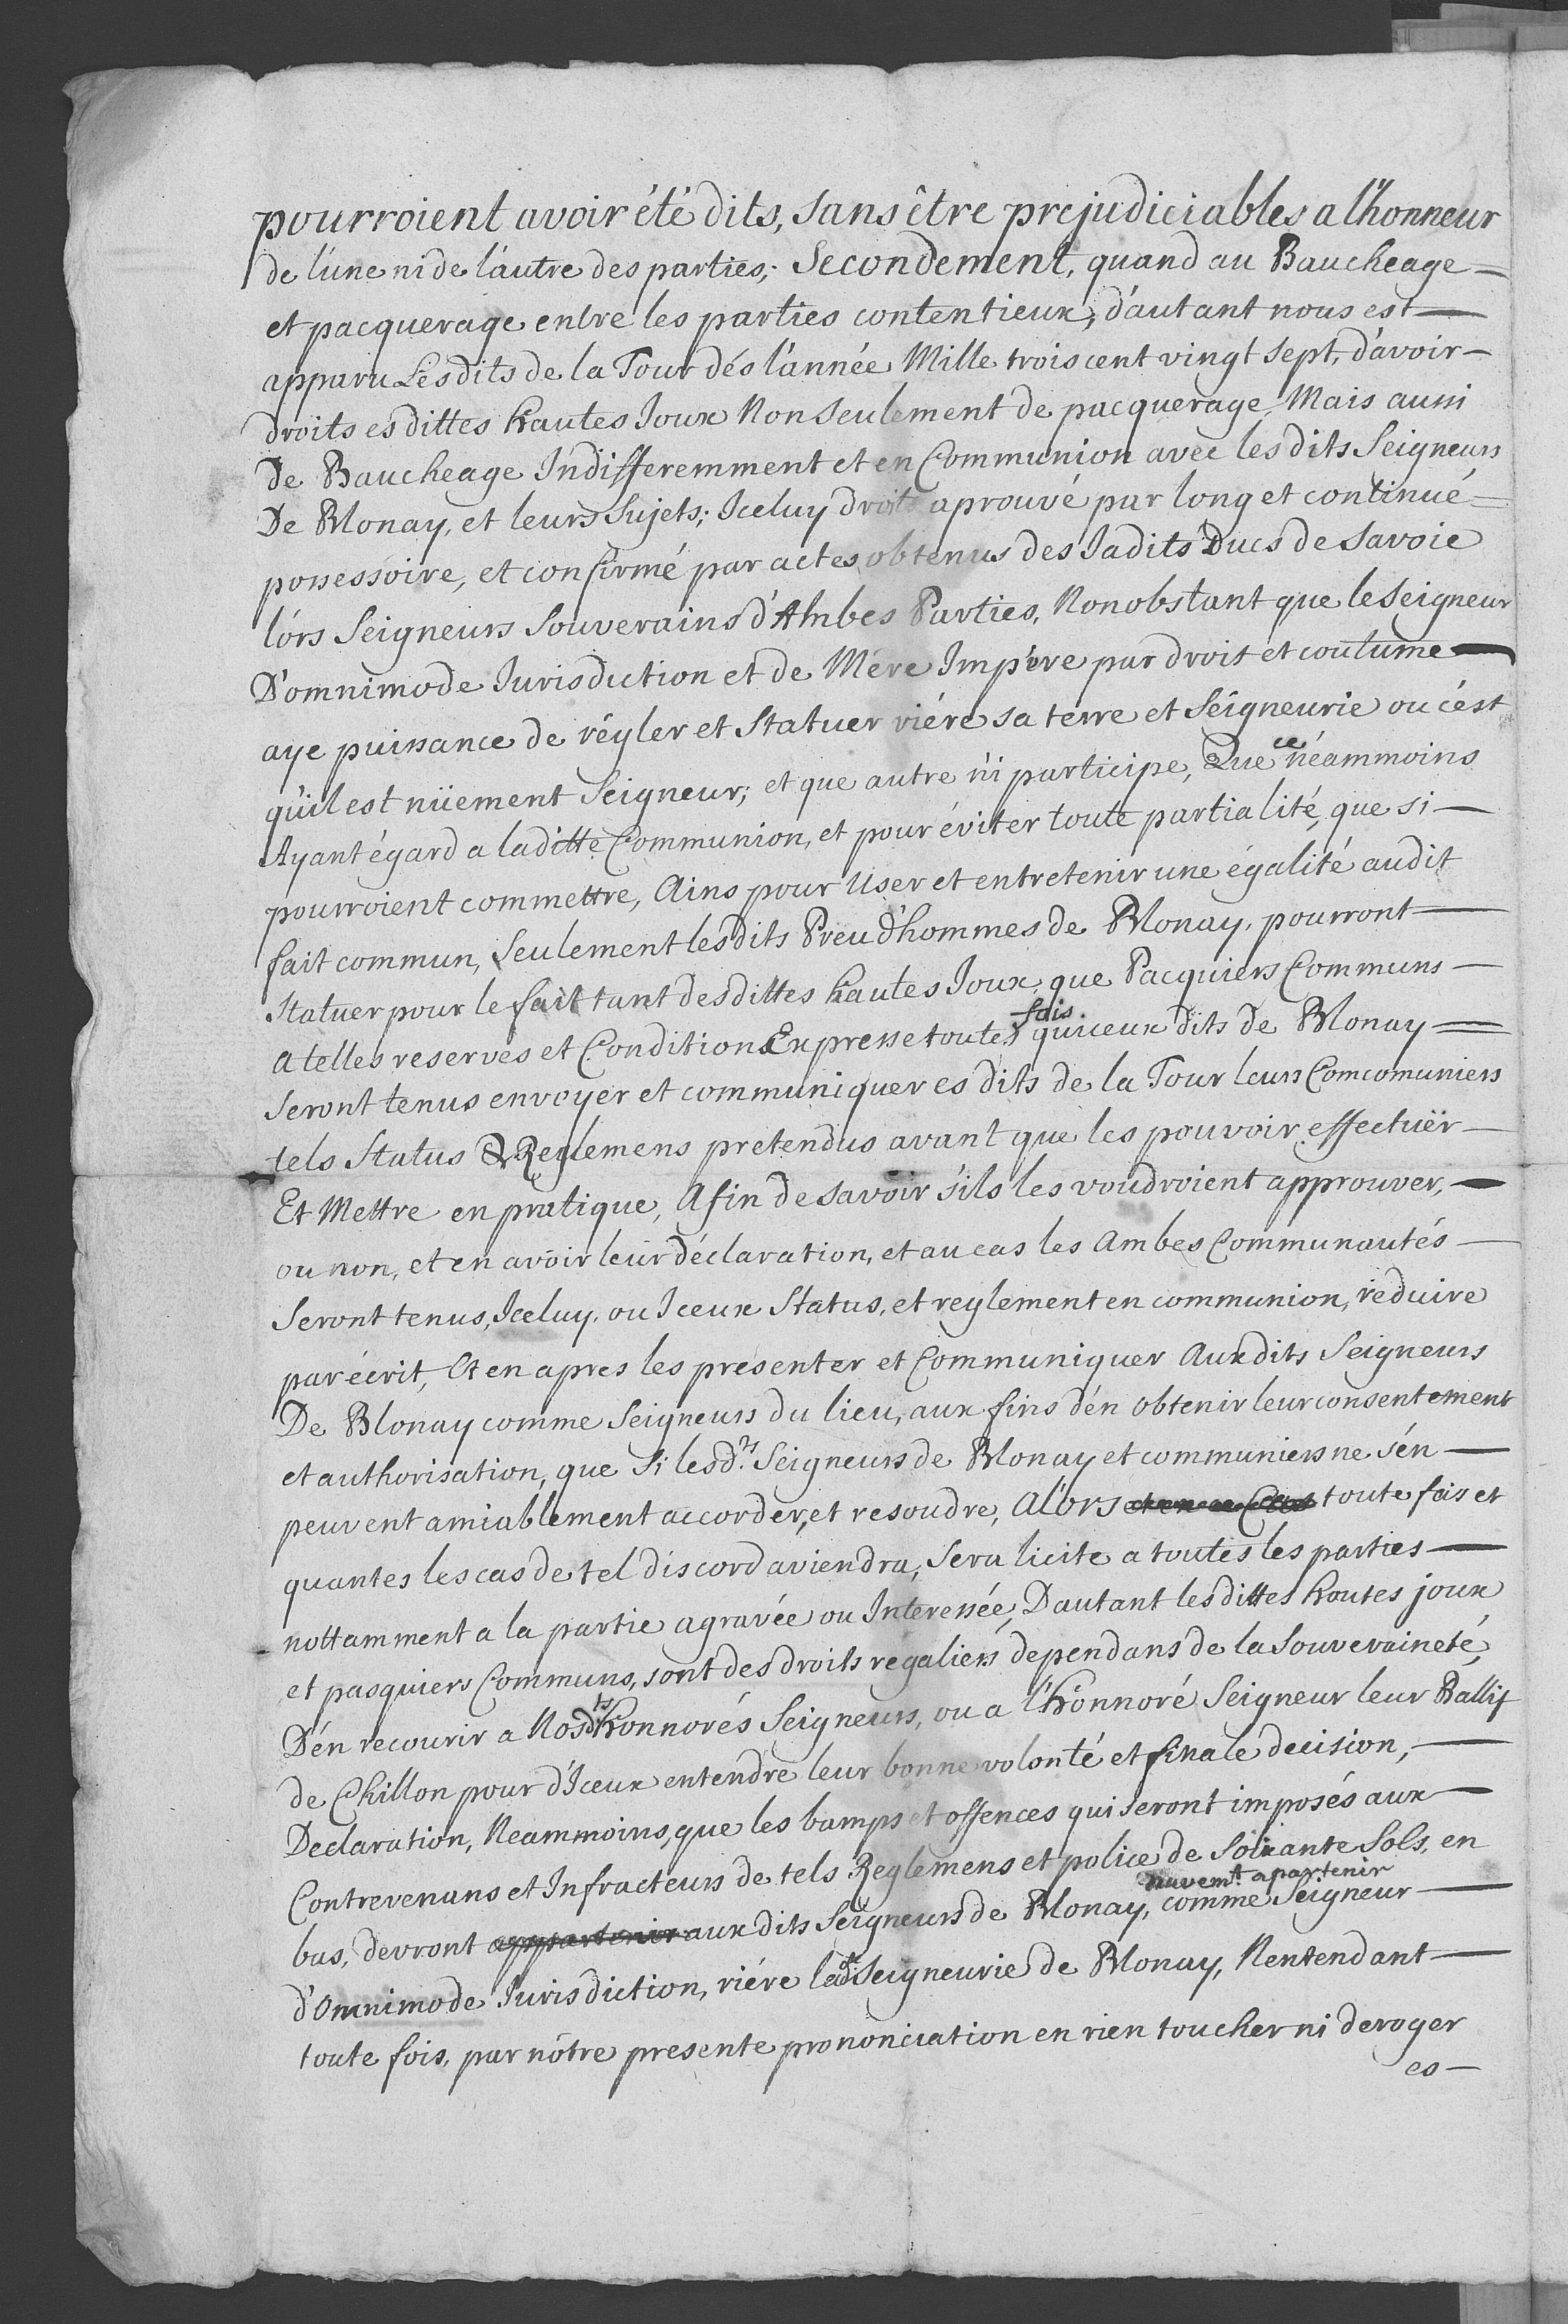 pourroient avoir été dits, sans être prejudiciables a l'honneur
de l'une ni de l'autre des parties; Secondement, quand au Baucheage
et pacquerage entre les parties contentieux, d'autant nous est
apparu Lesdits de la Tour dés l'année Mille trois cent vingt sept, d'avoir
droits esdittes hautes Joux Non seulement de pacquerage, Mais aussi
De Baucheage Indifferemment et en Communion avec lesdits Seigneurs
De Blonay, et leurs Sujets; Iceluy droits aprouvé par long et continué
possessoire, et confirmé par actes obtenus des Jadits Ducs de Savoie
lórs Seigneurs Souverains d'Ambes Parties, Nonobstant que le Seigneur
D'omnimode Jurisduction et de Mére Impére par droit et coutume
aye puissance de régler et Statuer riére sa terre et Séigneurie ou c'est
qu'il est nüement Seigneur; et que autre n'i participe, Que ce néammoins
Ayant égard a laditte Communion, et pour éviter toute partialité, que si
pourroient commettre, Ains pour User et entretenir une égalité audit
fait commun, Seulement lesdits Preud'hommes de Blonay, pourront
Statuer pour le fait tant desdittes hautes Joux, que Pacquiers Communs
a telles reserves et Conditions Expresse toutes fois qu'iceux dits de Blonay
Seront tenus envoyer et communiquer es dits de la Tour leurs Comcomuniers
tels Status & Reglemens pretendus avant que les pouvoir effectuër
Et Mettre en pratique, Afin de savoir s'ils les voudroient approuver,
ou non, et en avoir leur déclaration, et au cas les Ambes Communautés
Seront tenus, Iceluy, ou Iceux Status, et reglement en communion, reduire
par écrit, Et en apres les presenter et Communiquer Auxdits Seigneurs
De Blonay comme Seigneurs du lieu, aux fins d'én obtenir leur consentement
et authorisation, que Si lesd.ts Seigneurs de Blonay et communiers ne s'én
peuvent amiablement accorder, et resoudre, Alors toute fois et
quantes les cas de tel discord aviendra, Sera licite a toutes les parties
nottamment a la partie agravée ou Interessée, Dautant lesdittes hautes joux
et pasquiers Communs, sont des droits regaliers dependans de la Souveraineté,
D'én recourir a Nosdts honnorés Seigneurs, ou a l'honnoré Seigneur leur Ballif
de Chillon pour d'Iceux entendre leur bonne volonté et finale decision,
Declaration, Neammoins, que les bamps et offences qui seront imposés aux
Contrevenans et Infracteurs de tels Reglemens et police de Soixante Sols, en
nuvem.t apartenir
bas, devront appartenir aux dits Seigneurs de Blonay, comme Seigneur
d'Omnimode Jurisdiction, riére ladte Seigneurie de Blonay, Nentendant
toute fois, par nôtre presente prononciation en rien toucher ni deroger
es